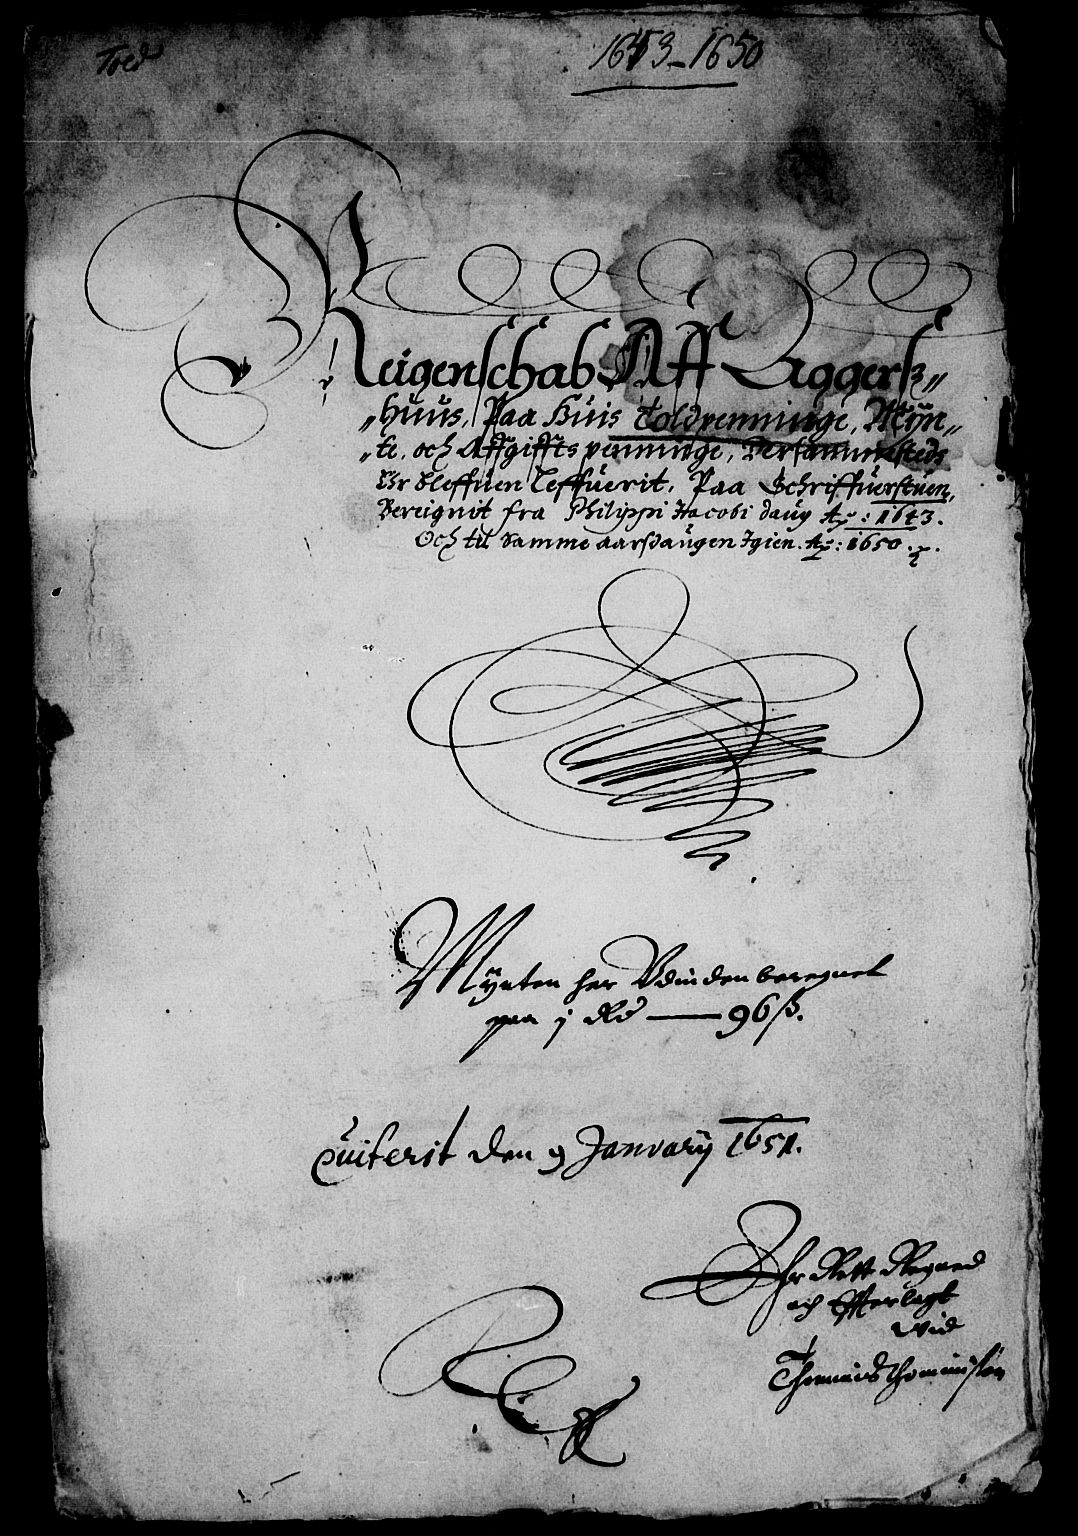 Told
1643-1650
Reigenschab Aff Aggers„
„huus, Paa Huis Toldpenninge, Myn„
„te, och Affgiffts penninge, Dersammesteds
Er bleffuen leffuerit, Paa Schriffuerstuen,
Bereignit fra Philippi Jacobi daug A̅o̅: 1643.
Och til Samme aarsdaugen Igien. A̅o̅: 1650.
Mynten her Vdinden beregnet
paa j Rd — 96 ß.
Quiterit den 9 January 1651.
Ehr Rett Regned
och Efferlagt
vid
Thomis Thommisøn